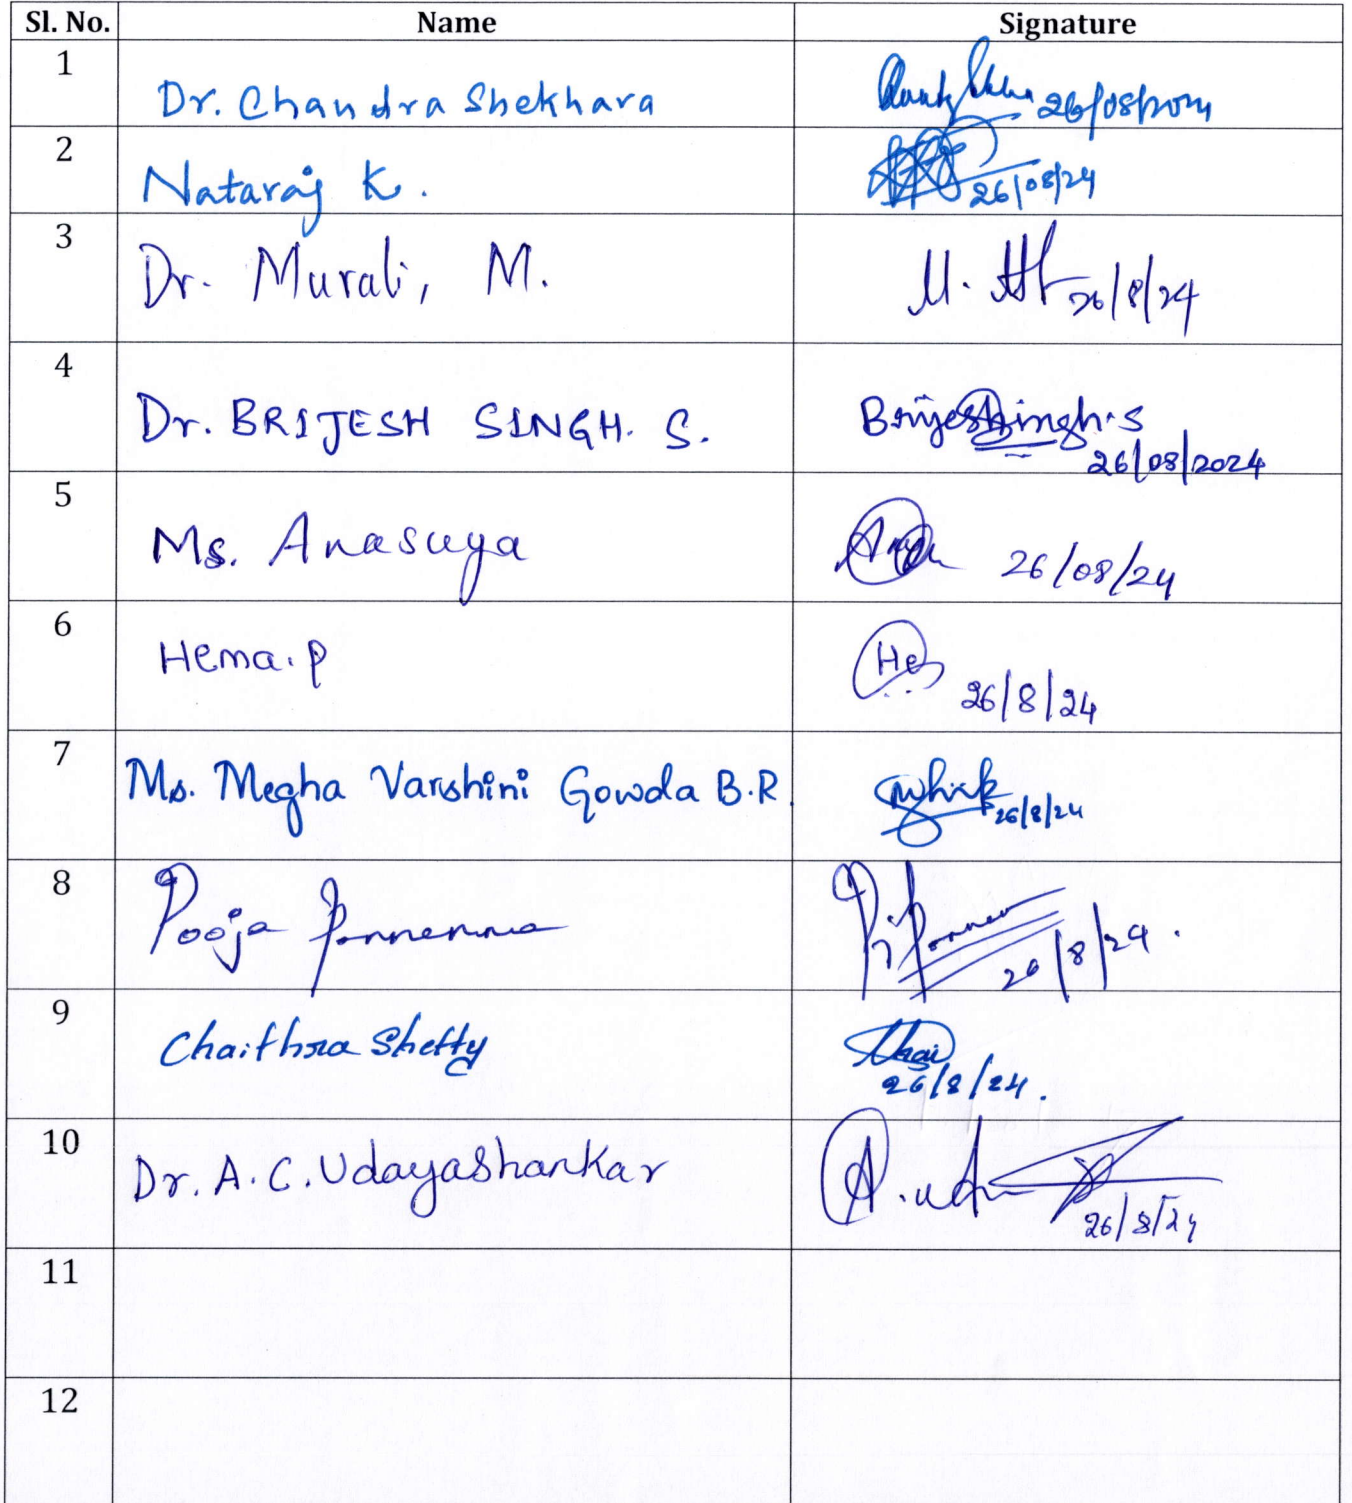 Sl. No. Name Signature
1
Dr. Chandra Shekhara 26/08/2024
2
Nataraj K. 26/08/24
3
Dr. Murali, M. M. 26/8/24
4
Dr. BRIJESH SINGH. S. Brijesh Singh.S
26/08/2024
5
Ms. Anasuya 26/08/24
6
Hema. P He
26/8/24
7
Ms. Megha Varshini Gowda B.R. 26/8/24
8
Pooja Ponnamma 26/8/24.
9
Chaithra Shetty
26/8/24.
10
Dr. A. C. Udayashankar
26/8/24
11
12